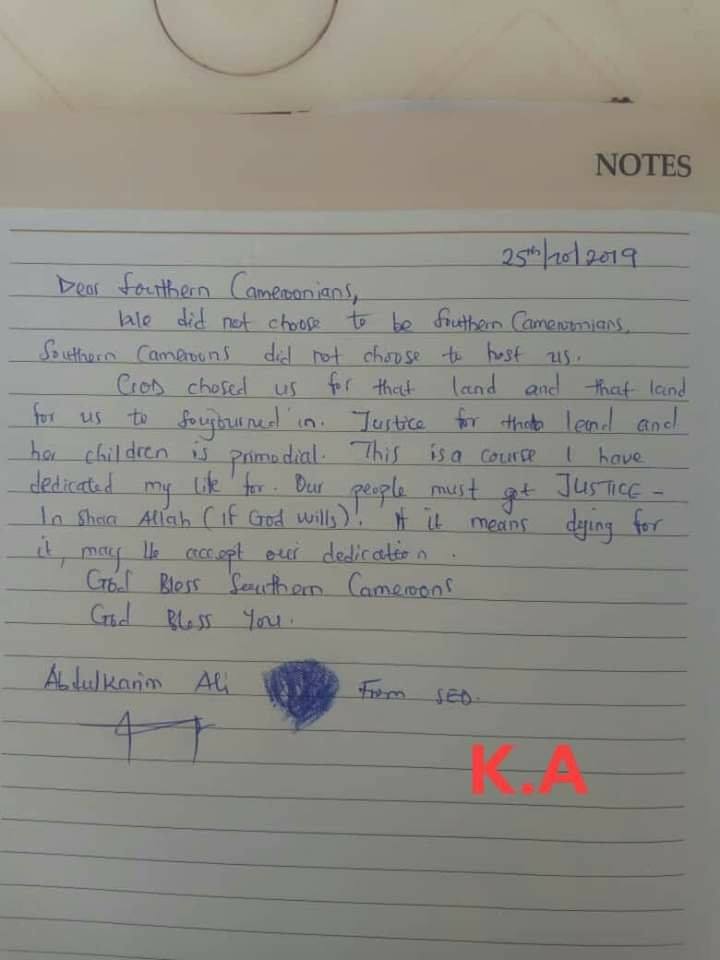 NOTES
25th/10/2019
Dear Southern Cameroonians,
We did not choose to be Southern Cameroonians.
Southern Cameroons did not choose to host us.
GOD chosed us for that land and that land
for us to soujourned in. Justice for that land and
her children is primodial. This is a course I have
dedicated my life for. Our people must get JUSTICE -
In Shaa Allah (if God wills)! If it means dying for
it, may He accept our dedication.
God Bless Southern Cameroons
God Bless You.
Abdulkarim Ali From SED.
K.A